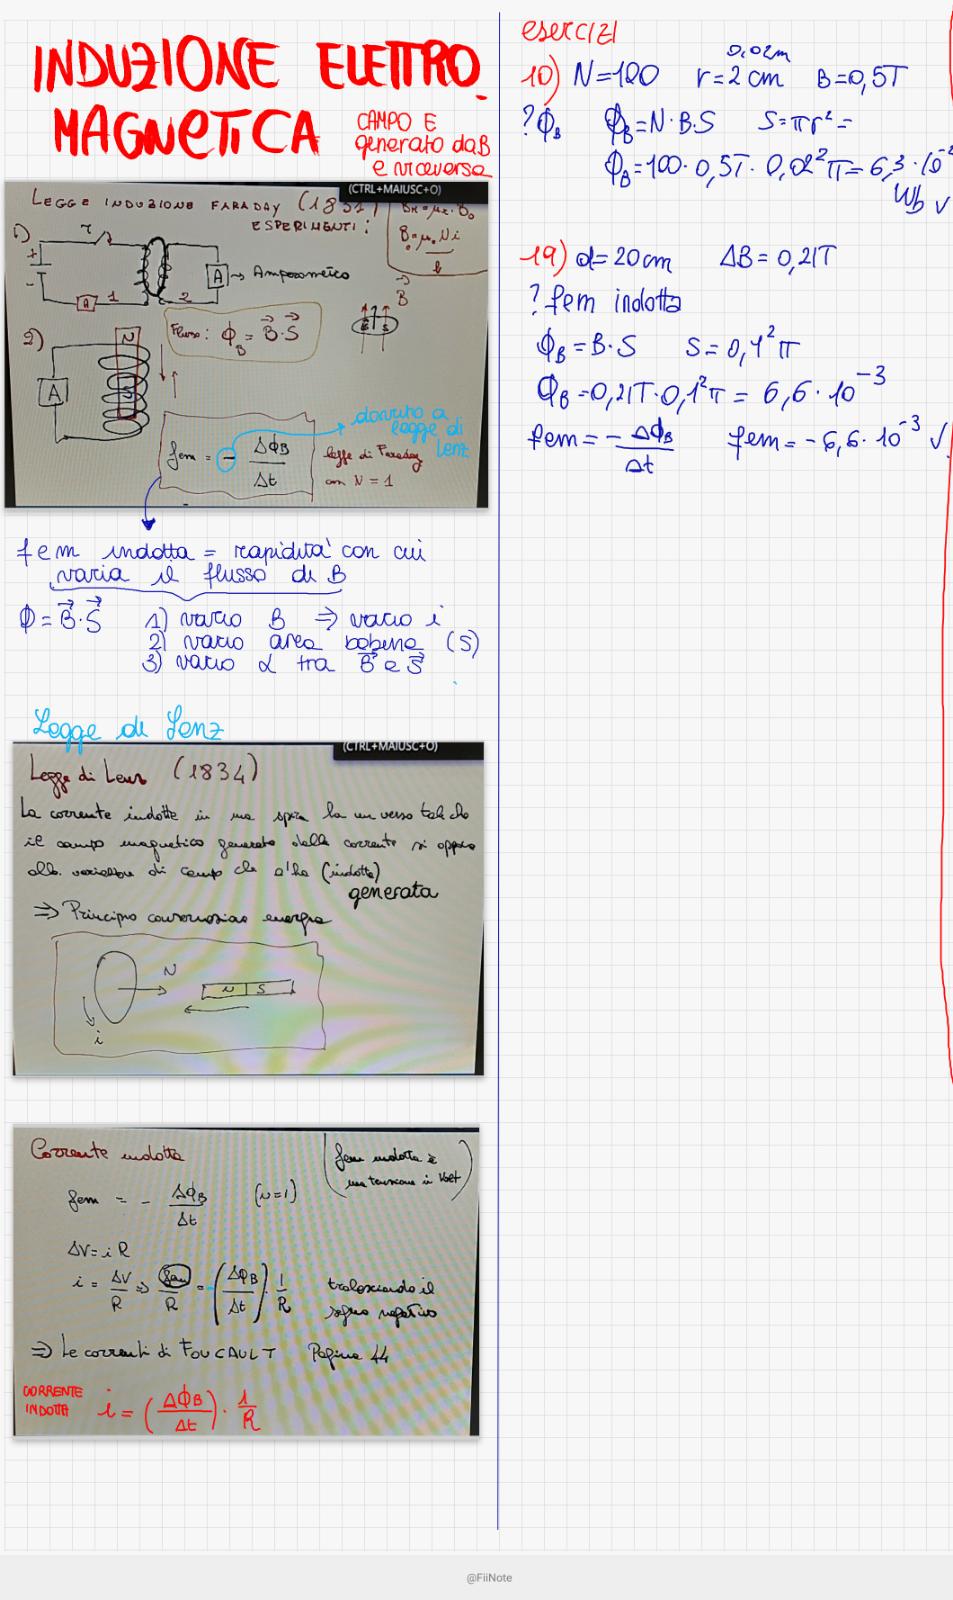 INDUZIONE ELETTRO
MAGNETICA
CAMPO E
generato da B
e viceversa
(CTRL+MAIUSC+O)
LEGGE INDUZIONE FARADAY (1831)
ESPERIMENTI:
1)
A
1
2
A → Amperometro
B
2)
N
S
A
Flusso: ΦB = B·S
fem = - ΔΦB/Δt
legge di Faraday
con N = 1
dovuto a
legge di
Lenz
fem indotta = rapidità con cui
varia il flusso di B
Φ = B·S 1) vario B ⇒ vario i
2) vario area bobina (S)
3) vario α tra B e S
Legge di Lenz
(CTRL+MAIUSC+O)
Legge di Lenz (1834)
La corrente indotta in una spira ha un verso tale che
il campo magnetico generato dalla corrente si oppone
alla variazione di campo che l'ha (indotta)
generata
⇒ Principio conservazione energia
N
N S
i
Corrente indotta
(fem indotta è
una tensione in Volt)
fem = - ΔΦB/Δt (N=1)
ΔV = i R
i = ΔV/R ⇒ fem/R = (ΔΦB/Δt) · 1/R tralasciando il
segno negativo
⇒ Le correnti di FOUCAULT Pagina 44
CORRENTE
INDOTTA
i = (ΔΦB/Δt) · 1/R
esercizi
0.02m
10) N=100 r=2cm B=0,5T
? ΦB ΦB=N·B·S S=πr²=
ΦB=100·0,5T·0,02²π=6,3·10⁻²
Wb √
19) d=20cm ΔB=0,21T
? fem indotta
ΦB=B·S S=0,1²π
ΦB=0,21T·0,1²π = 6,6·10⁻³
fem = - ΔΦB/Δt fem = -6,6·10⁻³ √
@FiiNote